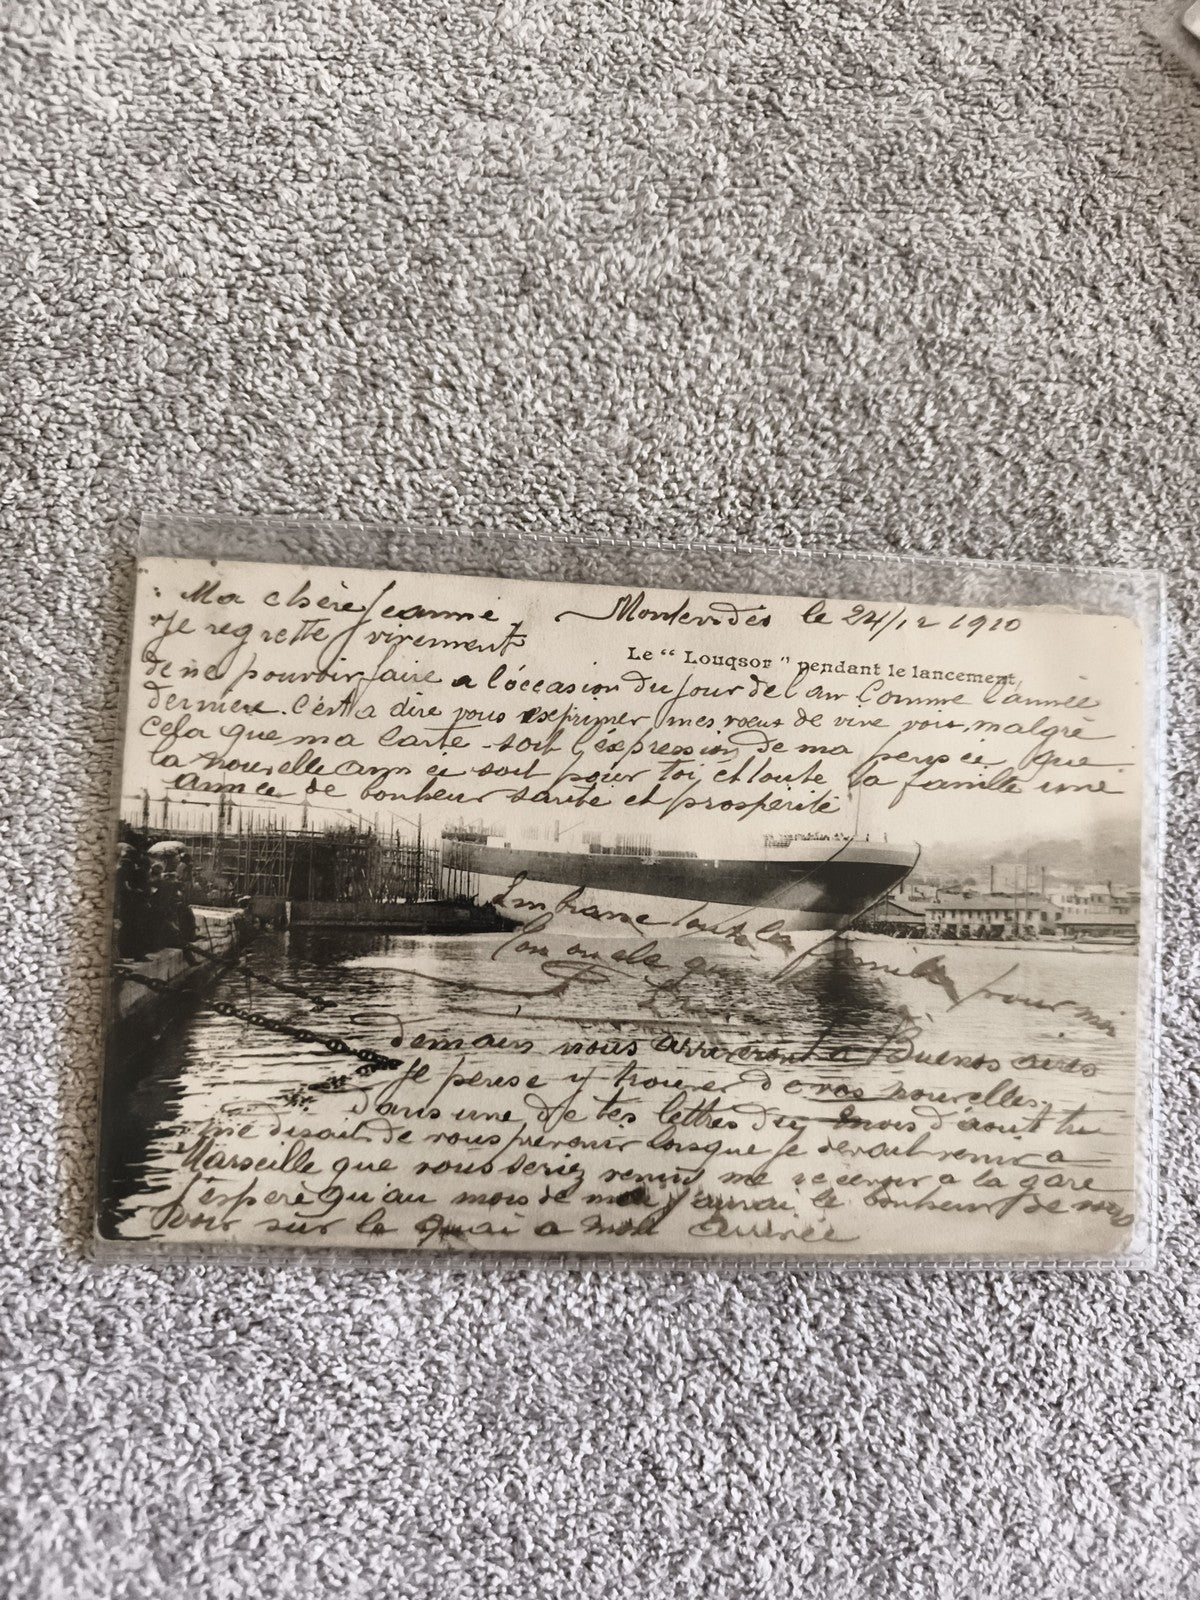 Ma chère Jeanne, Montevideo le 24/12 1910
Je regrette vivement
Le “ Louqsor ” pendant le lancement.
de ne pouvoir faire a l'occasion du jour de l'an Comme l'année
dernière. C'est a dire vous exprimer mes vœux de vive voix, malgré
Cela que ma Carte soit l'éxpression de ma pensée, que
la nouvelle année soit pour toi, et toute la famille une
année de bonheur santé et prospérité
Embrasse toute la famille pour moi
Ton oncle qui
demain nous arriveront a Buenos aires
Je pense y trouver de vos nouvelles.
dans une de tes lettres du mois d'aout tu
me disait de vous prévenir lorsque je devait venir a
Marseille que vous seriez venus me recevoir a la gare
J'espère qu'au mois de mai j'aurai le bonheur de vous
voir sur le quai a mon arrivée